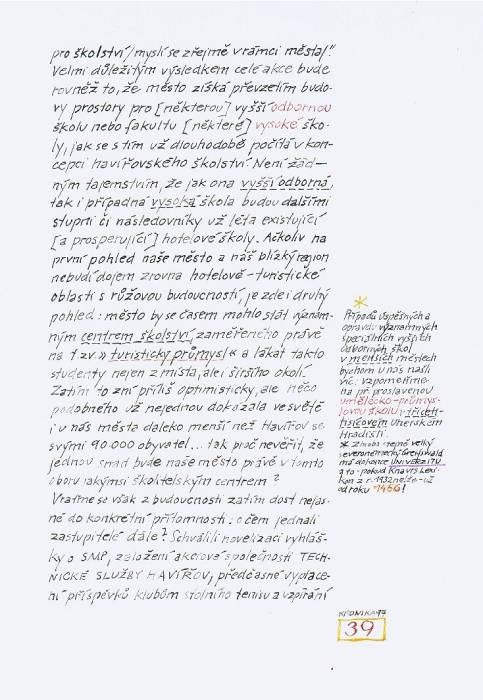 pro školství/myslí se zřejmě v rámci města/."
Velmi důležitým výsledkem celé akce bude
rovněž to, že město získá převzetím budo-
vy prostory pro [některou] vyšší odbornou
školu nebo fakultu [některé] vysoké ško-
ly, jak se s tím už dlouhodobě počítá v kon-
cepci havířovského školství. Není žád-
ným tajemstvím, že jak ona vyšší odborná,
tak i případná vysoká škola budou dalšími
stupni či následovníky už léta existující
[a prosperující] hotelové školy. Ačkoliv na
první pohled naše město a náš blízký region
nebudí dojem zrovna hotelově-turistické
oblasti s růžovou budoucností, je zde i druhý
pohled: město by se časem mohlo stát význam-
ným centrem školství, zaměřeného právě
na tzv. » turistický průmysl « a lákat takto
studenty nejen z místa, ale i širšího okolí.
Zatím to zní příliš optimisticky, ale něco
podobného už nejednou dokázala ve světě
i u nás města daleko menší než Havířov se
svými 90.000 obyvatel... tak proč nevěřit, že
jednou snad bude naše město právě v tomto
oboru jakýmsi školitelským centrem?
Vraťme se však z budoucnosti zatím dost nejas-
né do konkrétní přítomnosti: o čem jednali
zastupitelé dále? Schválili novelizaci vyhláš-
ky o SMP, založení akciové společnosti TECH-
NICKÉ SLUŽBY HAVÍŘOV, předčasné vyplace-
ní příspěvků klubům stolního tenisu a vzpírání
* Případů úspěšných a
opravdu významných
speciálních vyšších
odborných škol
v menších městech
bychom u nás našli
víc: vzpomeňme
na př. proslavenou
umělecko-průmys-
lovou školu v třicíti-
tisícovém Uherském
Hradišti.
* Zhruba stejně velký
severoněmecký Greifswald
má dokonce UNIVERZITU
a to - pokud Knaurs Lexi-
kon z r. 1932 nelže - už
od roku 1456!
KRONIKA 97
39